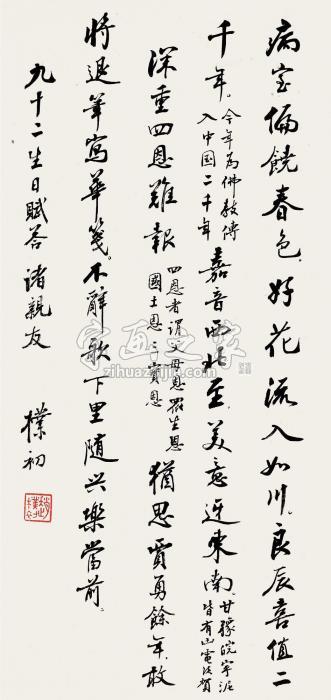 病室偏饒春色。好花流入如川。良辰喜值二
千年。今年為佛教傳
入中国二千年
嘉音西北至。美意迓東南。甘豫皖寧滬
皆有函電致賀
深重四恩難報 四恩者謂父母恩眾生恩
國土恩三寶恩
猶思賈勇餘年。敢
將退筆寫華箋。不辭歌下里随兴樂當前。
九十二生日賦荅 諸親友 樸初
字画之家